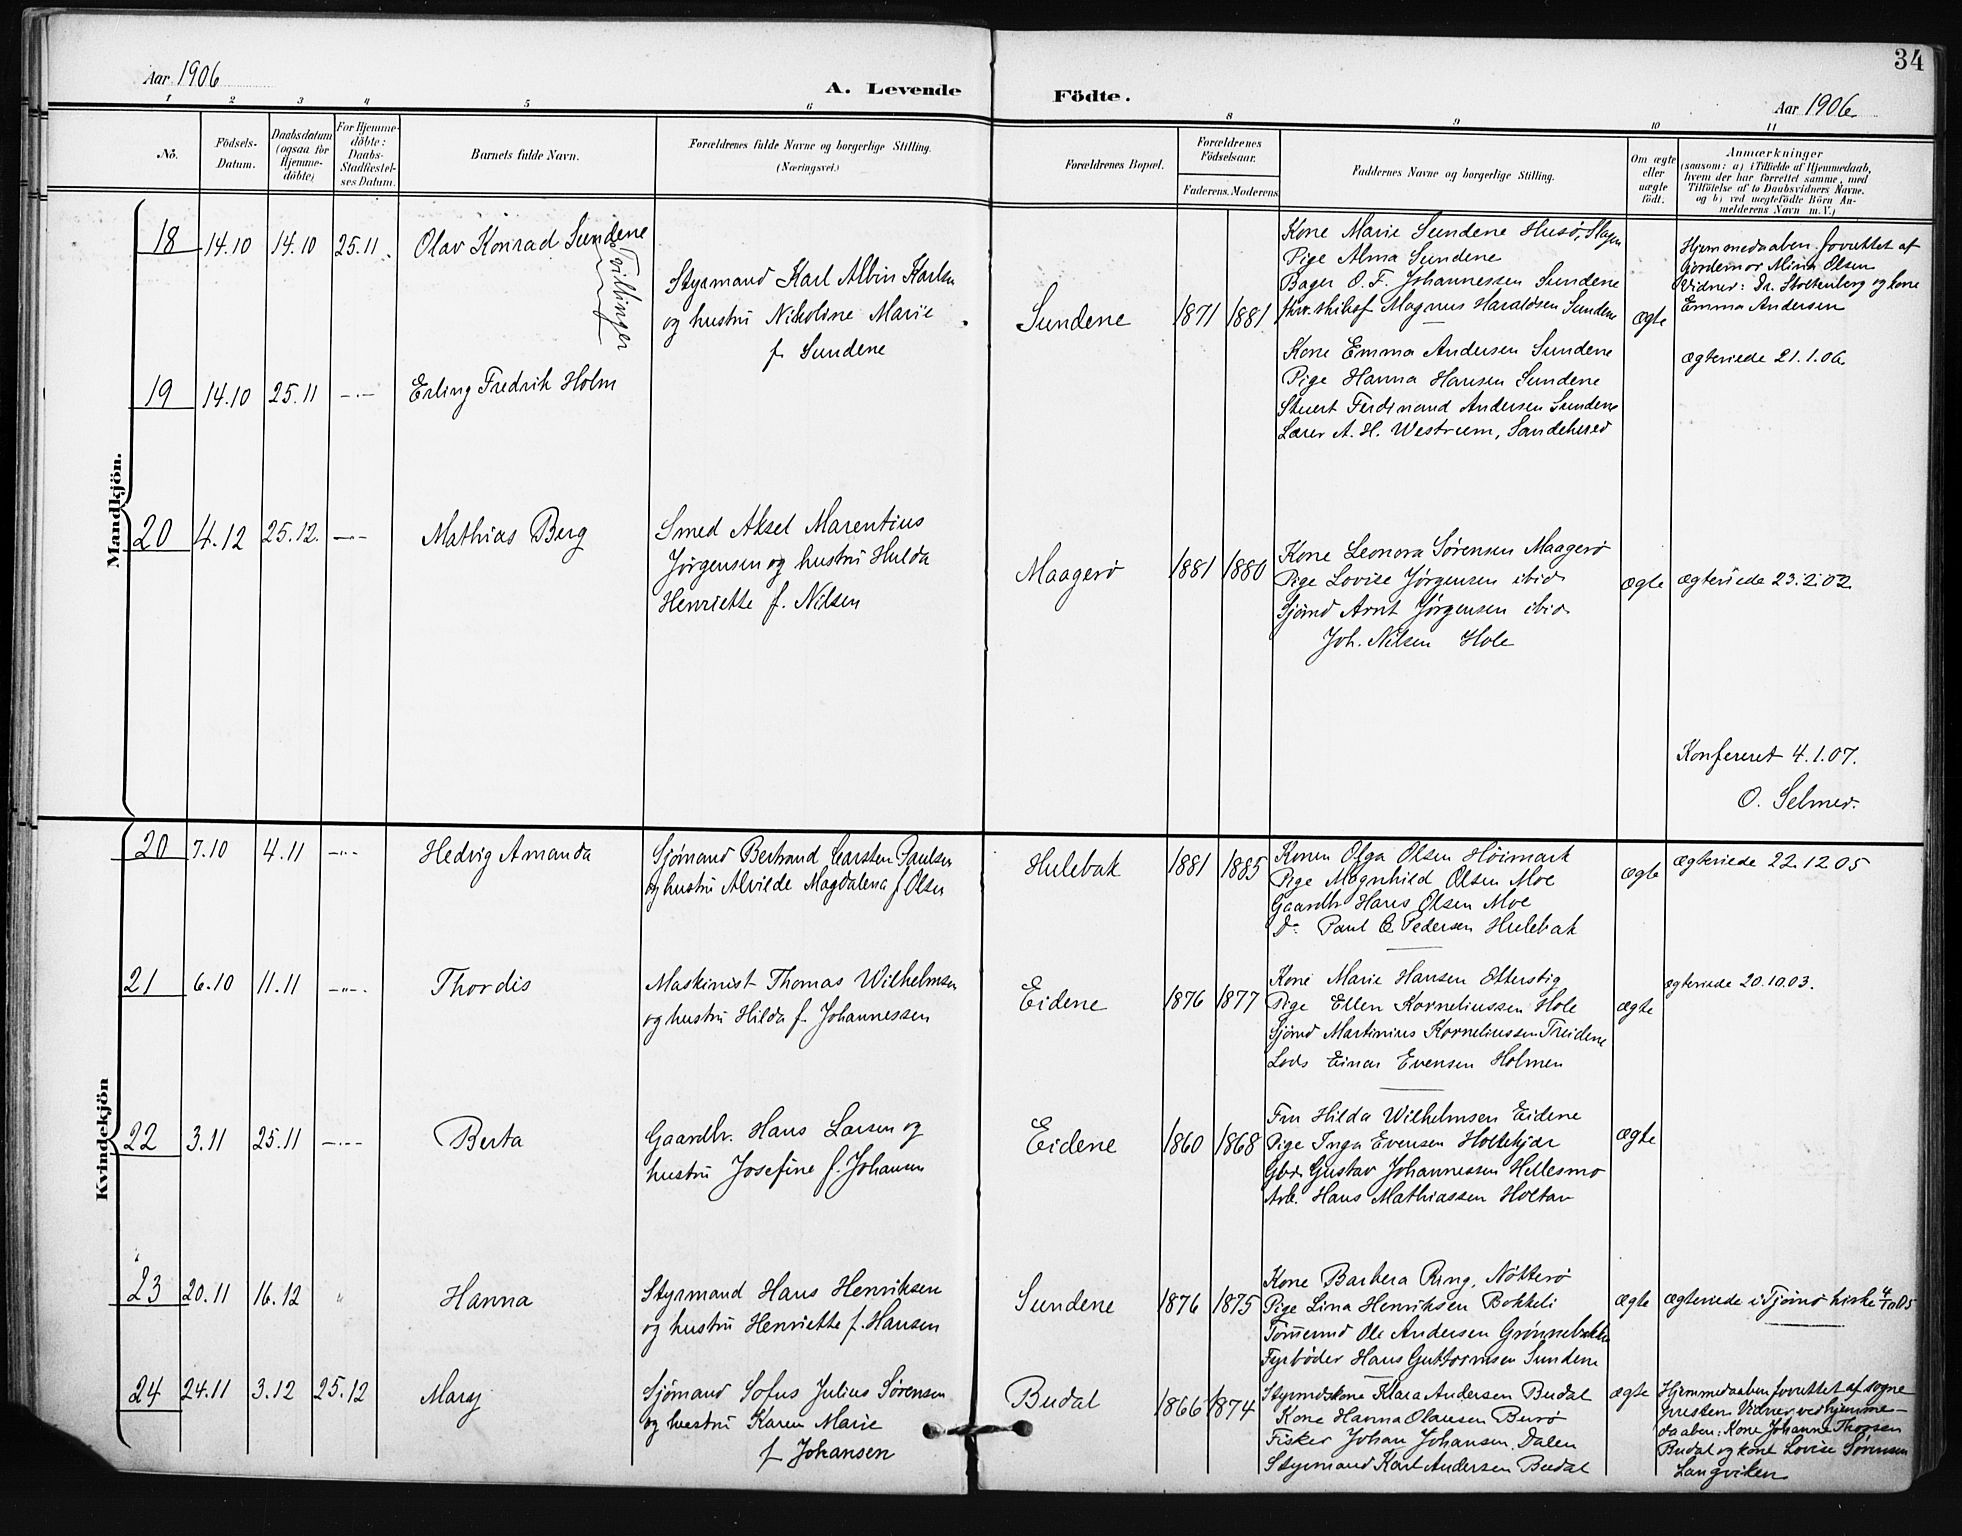 34
Aar 1906
A. Levende Födte.
Aar 1906
1 2 3 4 5 6 8 9 10 11
No.
Födsels-
Datum.
Daabsdatum
(ogsaa for
Hjemme-
döbte)
For Hjemme-
döbte:
Daabs-
Stadfæstel-
ses Datum.
Barnets fulde Navn.
Forældrenes fulde Navne og borgerlige Stilling.
(Næringsvei.)
Forældrenes Bopæl.
Forældrenes
Födselsaar.
Faderens. Moderens.
Faddernes Navne og borgerlige Stilling.
Om ægte
eller
uægte
födt.
Anmærkninger
(saasom: a) i Tilfælde af Hjemmedaab,
hvem der har forrettet samme, med
Tilföielse af to Daabsvidners Navne,
og b) ved uægtefödte Börn An-
melderens Navn m. V.)
Mandkjön.
18 14.10 14.10 25.11. Olav Konrad Sundene
Tvillinger
Styrmand Karl Albin Karlsen
og hustru Nikoline Marie
f. Sundene
Sundene 1871 1881
Kone Marie Sundene Husö, Slagen
Pige Alma Sundene
Bager O. F. Johannessen Sundene
Magnus Haraldsen Sundene
ægte
Hjemmedaaben forrettet af
jordemor Mina Olsen
Vidner: Dr. Stoltenberg og kone
Emma Andersen
19 14.10 25.11 -·- Erling Fredrik Holm
Kone Emma Andersen Sundene
Pige Hanna Hansen Sundene
Stuert Ferdinand Andersen Sundene
Lærer A. H. Westrum, Sandeherred
ægteviede 21.1.06
20 4.12 25.12. -·- Mathias Berg
Smed Aksel Marentius
Jørgensen og hustru Hulda
Henriette f. Nilsen
Maagerø 1881 1880
Kone Leonora Sørensen Maagerø
Pige Lovise Jørgensen ibid.
Sjømd Arnt Jørgensen ibid.
Joh. Nilsen Hole
ægte
ægteviede 23.2.02
Konfereret 4.1.07.
O. Selmer.
Kvindekjön
20 7.10 4.11 -·- Hedvig Amanda
Sjømand Bertrand Carsten Paulsen
og hustru Alvilde Magdalena f. Olsen
Hulebak 1881 1885
Konen Olga Olsen Høimark
Pige Magnhild Olsen Moe
Gaardbr Hans Olsen Moe
Do Paul C Pedersen Hulebak
ægte
ægteviede 22.12.05
21 6.10 11.11 -·- Thordis
Maskinist Thomas Wilhelmsen
og hustru Hilda f. Johannessen
Eidene 1876 1877
Kone Marie Hansen Otterstig
Pige Ellen Korneliussen Hole
Sjømd Martinius Korneliussen Treidene
Lods Einar Evensen Holmen
ægte
ægteviede 20.10.03.
22 3.11 25.11 -·- Berta
Gaardbr. Hans Larsen og
hustru Josefine f. Johansen
Eidene 1860 1868
Fru Hilda Wilhelmsen Eidene
Pige Inga Evensen Holtekjær
Gbr. Gustav Johannessen Hellesmo
Arb. Hans Mathiassen Holtan
ægte
23 20.11 16.12 " Hanna
Styrmand Hans Henriksen
og hustru Henriette f. Hansen
Sundene 1876 1875
Kone Barbera Ring, Nötterö
Pige Lina Henriksen Bokkeli
Tømermd Ole Andersen Grønnebakke
Fyrbøder Hans Guttormsen Sundene
ægte
ægteviede i Tjømø kirke 4/10 05
24 24.11 3.12 25.12 Mary
Sjømand Sofus Julius Sørensen
og hustru Karen Marie
f Johansen
Budal 1866 1874
Styrmdskone Klara Andersen Budal
Kone Hanna Olausen Burø
Fisker Johan Johansen, Dalen
Styrmand Karl Andersen Budal
ægte
Hjemmedaaben forrettet af sogne
presten Vidner ved hjemme-
daaben: Kone Johanne Thorsen
Budal og kone Lovise Sørensen
Langviken